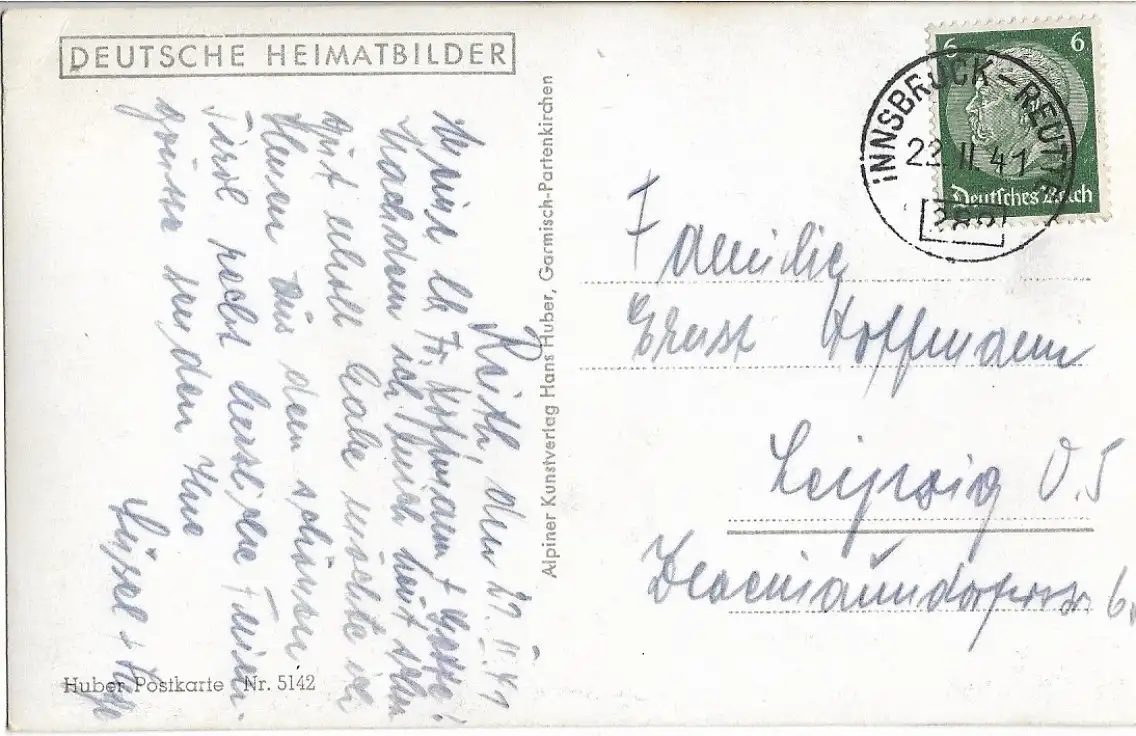 DEUTSCHE HEIMATBILDER
Reith, den 21. II. 41
Meine lb. Fr. Hoffmann + Gatte!
Nachdem ich mich heut sehr
gut erholt habe möchte ich
Ihnen aus dem schönen
Tirol recht herzliche Ferien-
grüsse senden Ihre
Alpiner Kunstverlag Hans Huber, Garmisch-Partenkirchen
Huber Postkarte Nr. 5142
6 6
Deutsches Reich
INNSBRUCK-REUTTE
22.II.41
Familie
Ernst Hoffmann
Leipzig O.5